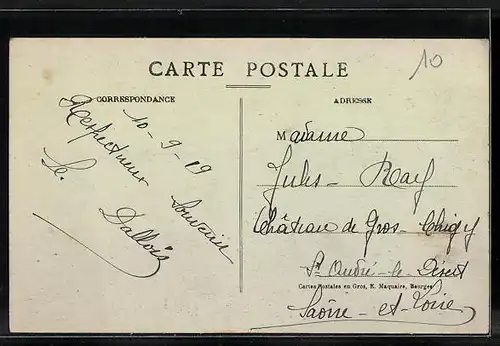 10
CARTE POSTALE
CORRESPONDANCE
10-9-19
Respectueux
Souvenir
Le.
Dallois
ADRESSE
Madame
Jules Ray
Château de Gros-Chigy
St André-le-Désert
Cartes Postales en Gros, E. Maquaire, Bourges
Saône-et-Loire